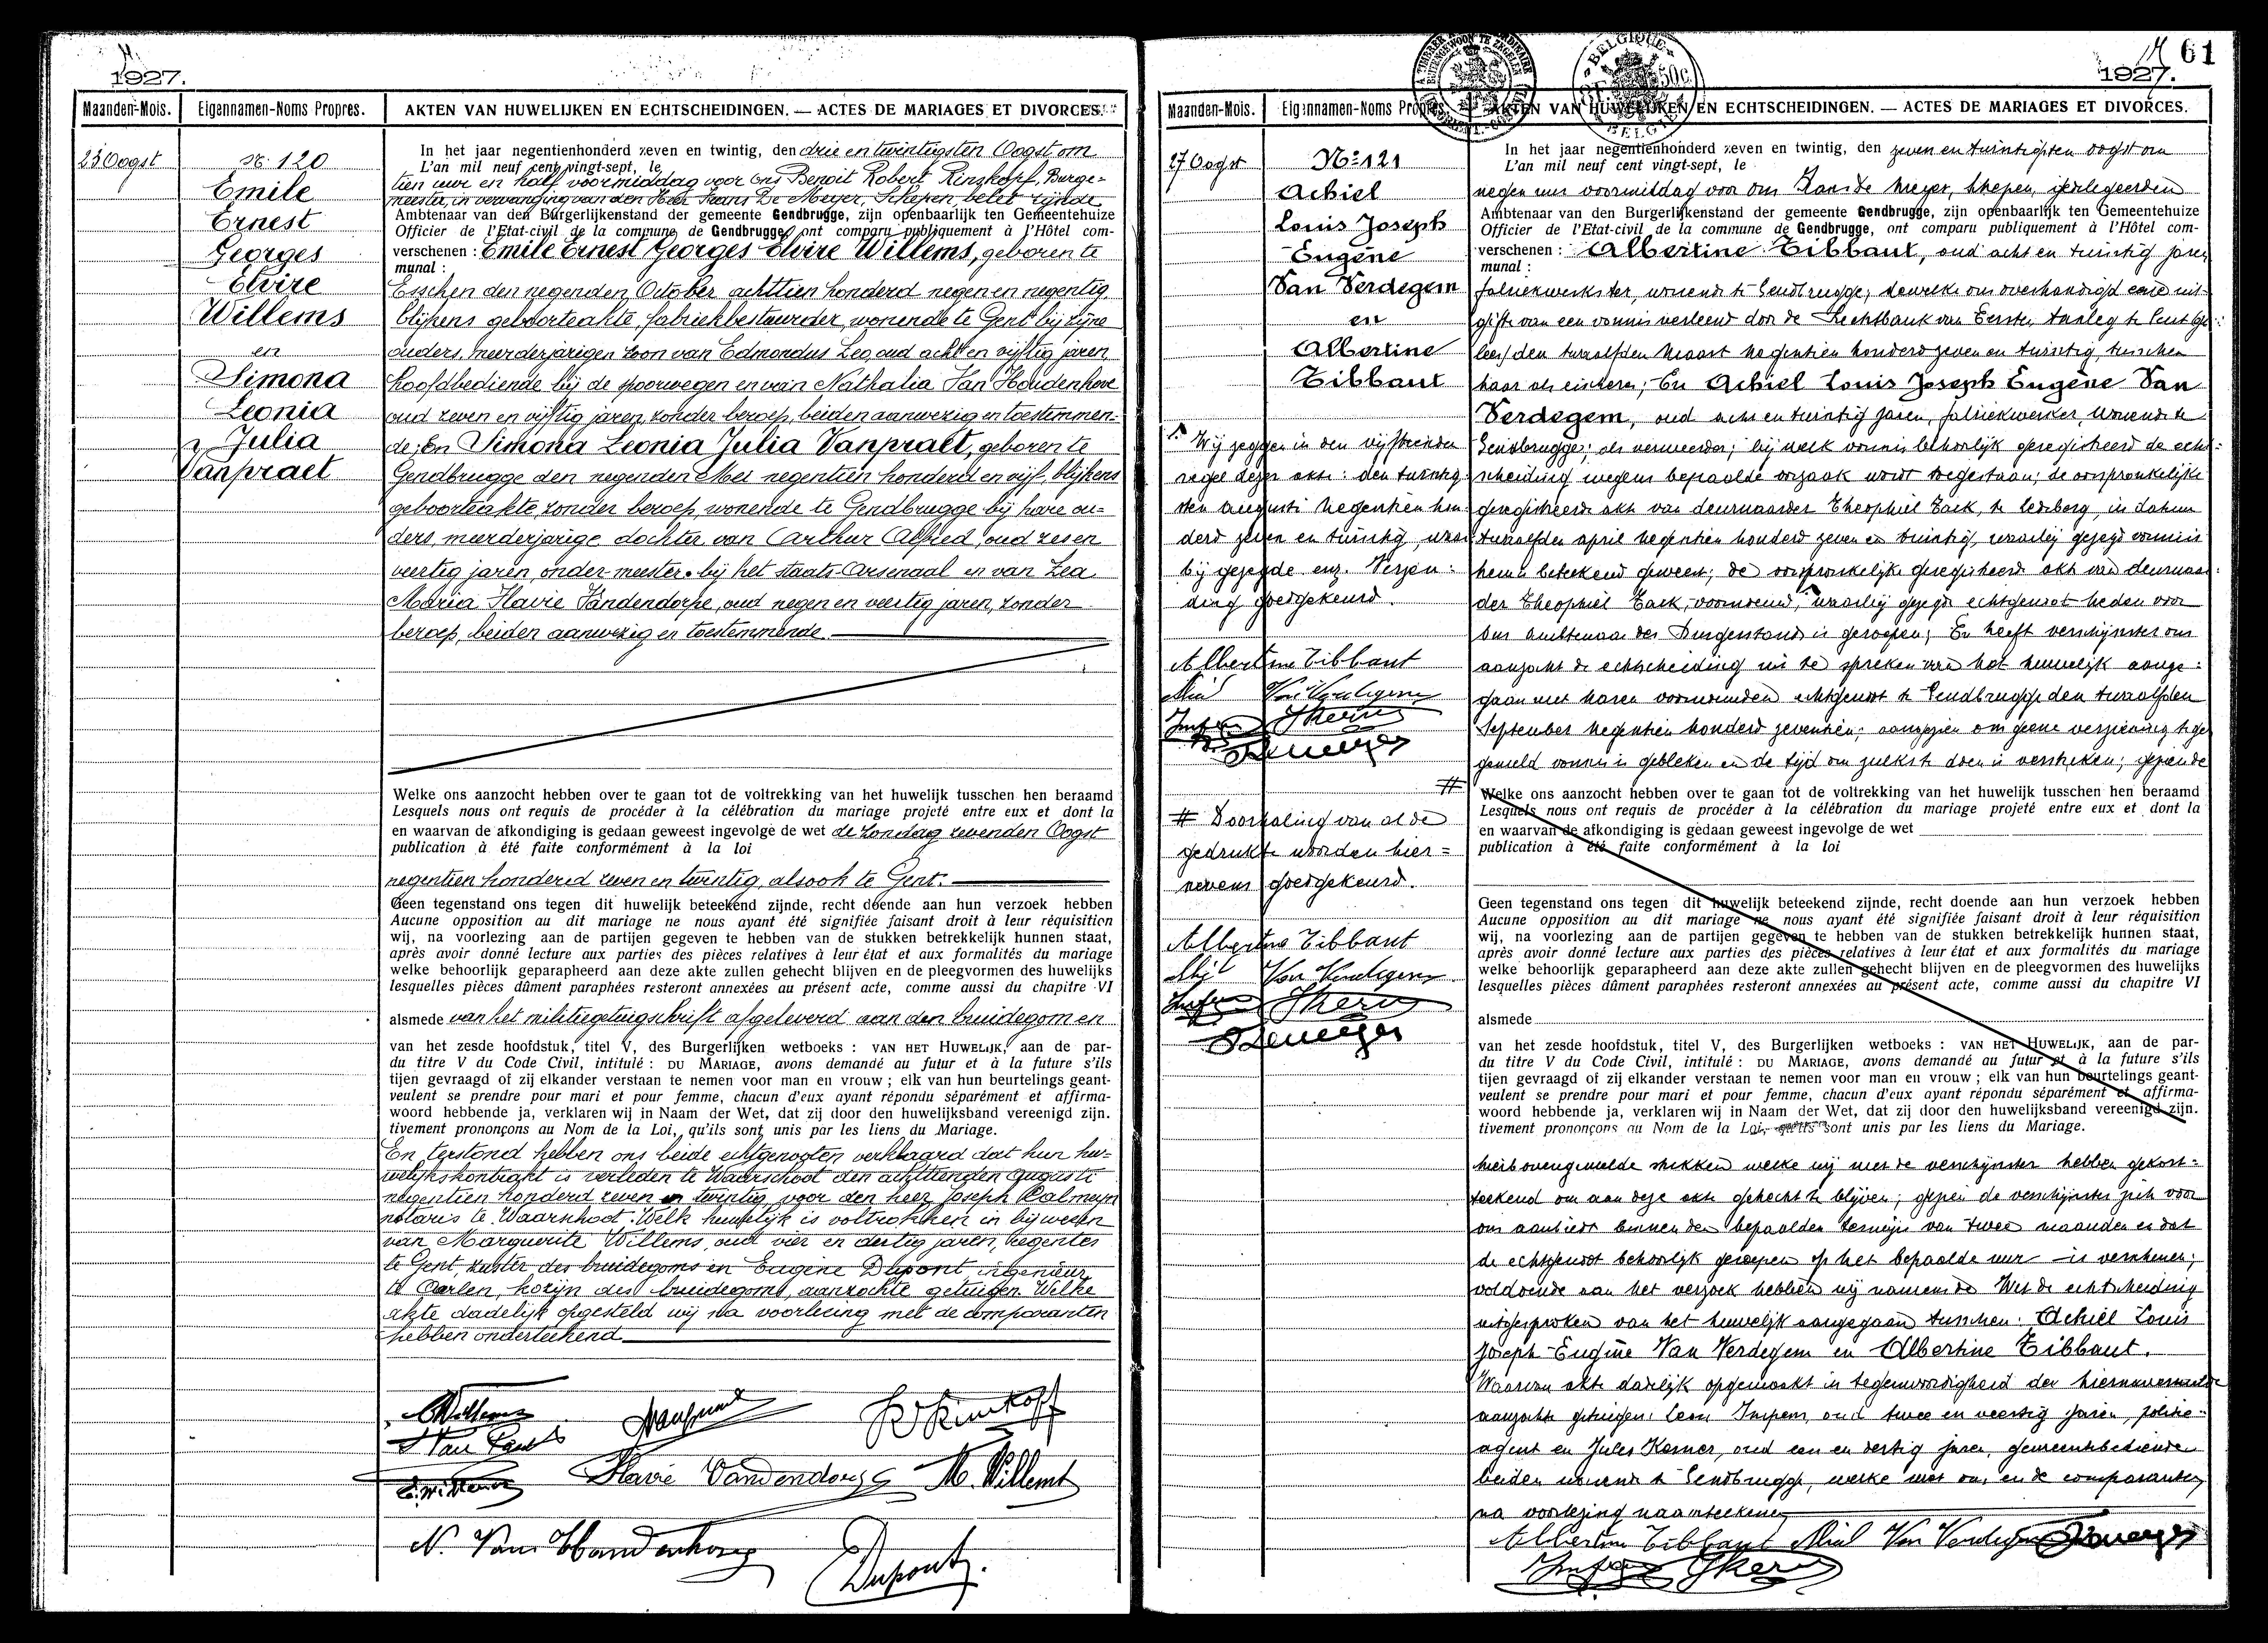 1927.
Maanden-Mois. Eigennamen-Noms Propres. AKTEN VAN HUWELIJKEN EN ECHTSCHEIDINGEN. — ACTES DE MARIAGES ET DIVORCES.
23 Oogst
No 120
Emile
Ernest
Georges
Elvire
Willems
en
Simona
Leonia
Julia
Vanpraet
In het jaar negentienhonderd zeven en twintig, den drie en twintigsten Oogst om
L'an mil neuf cent vingt-sept, le
tien uur en half voormiddag voor ons Benoit Robert Rinskopf, Burge=
meester, in vervanging van den Heer Frans De Meyer, Schepen, belet zijnde
Ambtenaar van den Burgerlijkenstand der gemeente Gendbrugge, zijn openbaarlijk ten Gemeentehuize
Officier de l'Etat-civil de la commune de Gendbrugge, ont comparu publiquement à l'Hôtel com-
verschenen : Emile Ernest Georges Elvire Willems, geboren te
munal :
Esschen den negenden October achttien honderd negen en negentig
blijkens geboorteakte, fabriekbestuurder, wonende te Gent bij zijne
ouders, meerderjarigen zoon van Edmondus Leo, oud acht en vijftig jaren
hoofdbediende bij de spoorwegen en van Nathalia Van Houdenhove
oud zeven en vijftig jaren, zonder beroep, beiden aanwezig en toestemmen-
de; En Simona Leonia Julia Vanpraet, geboren te
Gendbrugge den negenden Mei negentien honderd en vijf, blijkens
geboorteakte, zonder beroep, wonende te Gendbrugge bij hare ou=
ders, meerderjarige dochter van Arthur Alfred, oud zes en
veertig jaren, onder-meester bij het staats-Arsenaal en van Lea
Maria Flavie Vandendorpe, oud negen en veertig jaren, zonder
beroep, beiden aanwezig en toestemmende.
Welke ons aanzocht hebben over te gaan tot de voltrekking van het huwelijk tusschen hen beraamd
Lesquels nous ont requis de procéder à la célébration du mariage projeté entre eux et dont la
en waarvan de afkondiging is gedaan geweest ingevolge de wet de zondag zevenden Oogst
publication à été faite conformément à la loi
negentien honderd zeven en twintig, alsook te Gent.
Geen tegenstand ons tegen dit huwelijk beteekend zijnde, recht doende aan hun verzoek hebben
Aucune opposition au dit mariage ne nous ayant été signifiée faisant droit à leur réquisition
wij, na voorlezing aan de partijen gegeven te hebben van de stukken betrekkelijk hunnen staat,
après avoir donné lecture aux parties des pièces relatives à leur état et aux formalités du mariage
welke behoorlijk geparapheerd aan deze akte zullen gehecht blijven en de pleegvormen des huwelijks
lesquelles pièces dûment paraphées resteront annexées au présent acte, comme aussi du chapitre VI
alsmede van het militiegetuigschrift afgeleverd aan den bruidegom en
van het zesde hoofdstuk, titel V, des Burgerlijken wetboeks : VAN HET HUWELIJK, aan de par-
du titre V du Code Civil, intitulé : DU MARIAGE, avons demandé au futur et à la future s'ils
tijen gevraagd of zij elkander verstaan te nemen voor man en vrouw ; elk van hun beurtelings geant-
veulent se prendre pour mari et pour femme, chacun d'eux ayant répondu séparément et affirma-
woord hebbende ja, verklaren wij in Naam der Wet, dat zij door den huwelijksband vereenigd zijn.
tivement prononçons au Nom de la Loi, qu'ils sont unis par les liens du Mariage.
En terstond hebben ons beide echtgenooten verklaard dat hun hu-
welijkskontrakt is verleden te Waarschoot den achttienden augusti
negentien honderd zeven en twintig voor den heer Joseph Calmeyn
notaris te Waarschoot. Welk huwelijk is voltrokken in bijwezen
van Marguerite Willems, oud vier en dertig jaren, regentes
te Gent, zuster des bruidegoms en Eugène Dupont, ingenieur
te Aarlen, kozijn des bruidegoms, aanzochte getuigen. Welke
akte dadelijk opgesteld wij na voorlezing met de comparanten
hebben onderteekend
Flavie Vandendorpe M. Willems
N. Van Houdenhove
Dupont.
1927. 61
Maanden-Mois. Eigennamen-Noms Propres. AKTEN VAN HUWELIJKEN EN ECHTSCHEIDINGEN. — ACTES DE MARIAGES ET DIVORCES.
BELGIQUE 50c. BELGIE
27 Oogst
No 121
Achiel
Louis Joseph
Eugène
Van Verdegem
en
Albertine
Tibbaut
Wij zeggen in den vijftienden
regel dezer akte : den twintig
sten augusti negentien hon-
derd zeven en twintig, waar
bij gezegde enz. Verzen=
ding goedgekeurd.
Albertine Tibbaut
Achiel Van Verdegem
# Doorhaling van al de
gedrukte woorden hier=
nevens goedgekeurd.
Albertine Tibbaut
Achiel Van Verdegem
In het jaar negentienhonderd zeven en twintig, den zeven en twintigsten oogst om
L'an mil neuf cent vingt-sept, le
negen uur voormiddag voor ons Frans de Meyer, Schepen, gedelegeerden
Ambtenaar van den Burgerlijkenstand der gemeente Gendbrugge, zijn openbaarlijk ten Gemeentehuize
Officier de l'Etat-civil de la commune de Gendbrugge, ont comparu publiquement à l'Hôtel com-
verschenen : Albertine Tibbaut, oud acht en twintig jaren
munal :
fabriekwerkster, wonende te Gendbrugge, dewelke ons overhandigd eene uit-
gifte van een vonnis verleend door de Rechtbank van Eersten Aanleg te Gent
den twaalfden Maart negentien honderd zeven en twintig, tusschen
haar als eischeres; En Achiel Louis Joseph Eugène Van
Verdegem, oud acht en twintig jaren, fabriekwerker, wonende te
Gendbrugge; als verweerder; bij welk vonnis behoorlijk geregistreerd de echt-
scheiding wegens bepaalde oorzaak wordt toegestaan; de oorspronkelijke
geregistreerde akt van deurwaarder Theophiel Tack, te Ledeberg, in datum
twaalfden april negentien honderd zeven en twintig, waarbij gezegd vonnis
hem is beteekend geweest; de oorspronkelijke geregistreerde akt van deurwaar-
der Theophiel Tack, voornoemd, waarbij gezegde echtgenoot heden voor
ons ambtenaar des Burgerstands is geroepen; En heeft verschijnster ons
aanzocht de echtscheiding uit te spreken van het huwelijk aange=
gaan met haren voornoemden echtgenoot te Gendbrugge den twaalfden
September negentien honderd zeventien; aangezien ons geene verzetting tegen
gemeld vonnis is gebleken en de tijd om zulks te doen is verstreken; gezien de
Welke ons aanzocht hebben over te gaan tot de voltrekking van het huwelijk tusschen hen beraamd
Lesquels nous ont requis de procéder à la célébration du mariage projeté entre eux et dont la
en waarvan de afkondiging is gedaan geweest ingevolge de wet
publication à été faite conformément à la loi
Geen tegenstand ons tegen dit huwelijk beteekend zijnde, recht doende aan hun verzoek hebben
Aucune opposition au dit mariage ne nous ayant été signifiée faisant droit à leur réquisition
wij, na voorlezing aan de partijen gegeven te hebben van de stukken betrekkelijk hunnen staat,
après avoir donné lecture aux parties des pièces relatives à leur état et aux formalités du mariage
welke behoorlijk geparapheerd aan deze akte zullen gehecht blijven en de pleegvormen des huwelijks
lesquelles pièces dûment paraphées resteront annexées au présent acte, comme aussi du chapitre VI
alsmede
van het zesde hoofdstuk, titel V, des Burgerlijken wetboeks : VAN HET HUWELIJK, aan de par-
du titre V du Code Civil, intitulé : DU MARIAGE, avons demandé au futur et à la future s'ils
tijen gevraagd of zij elkander verstaan te nemen voor man en vrouw ; elk van hun beurtelings geant-
veulent se prendre pour mari et pour femme, chacun d'eux ayant répondu séparément et affirma-
woord hebbende ja, verklaren wij in Naam der Wet, dat zij door den huwelijksband vereenigd zijn.
tivement prononçons au Nom de la Loi, qu'ils sont unis par les liens du Mariage.
hierbovengemelde stukken welke wij met de verschijnster hebben gekort=
teekend om aan deze akte gehecht te blijven; gezien de verschijnster zich voor
ons aanbiedt binnen den bepaalden termijn van twee maanden en dat
de echtgenoot behoorlijk geroepen op het bepaalde uur is verschenen;
voldoende aan het verzoek hebben wij namens de Wet de echtscheiding
uitgesproken van het huwelijk aangegaan tusschen : Achiel Louis
Joseph Eugène Van Verdegem en Albertine Tibbaut.
Waarvan akte dadelijk opgemaakt in tegenwoordigheid der hiernavermelde
aanzochte getuigen: Leon Impens, oud twee en veertig jaren, politie-
agent en Jules Kerner, oud een en dertig jaren, gemeentebediende
beiden wonende te Gendbrugge, welke met ons en de comparanten,
na voorlezing naamteekenen
Albertine Tibbaut Achiel Van Verdegem